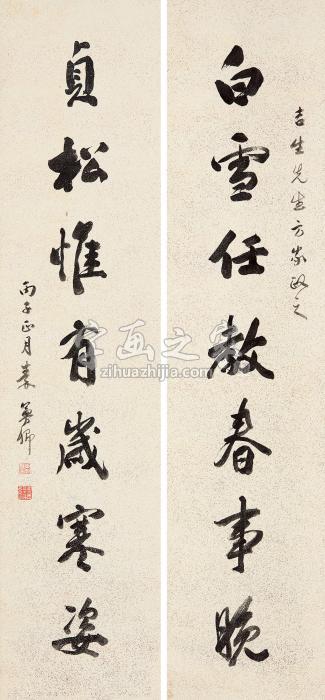 吉生先生方家政之
白雪任教春事晚
貞松惟有歲寒姿
丙子正月秦曼卿
字画之家
zihuazhijia.com